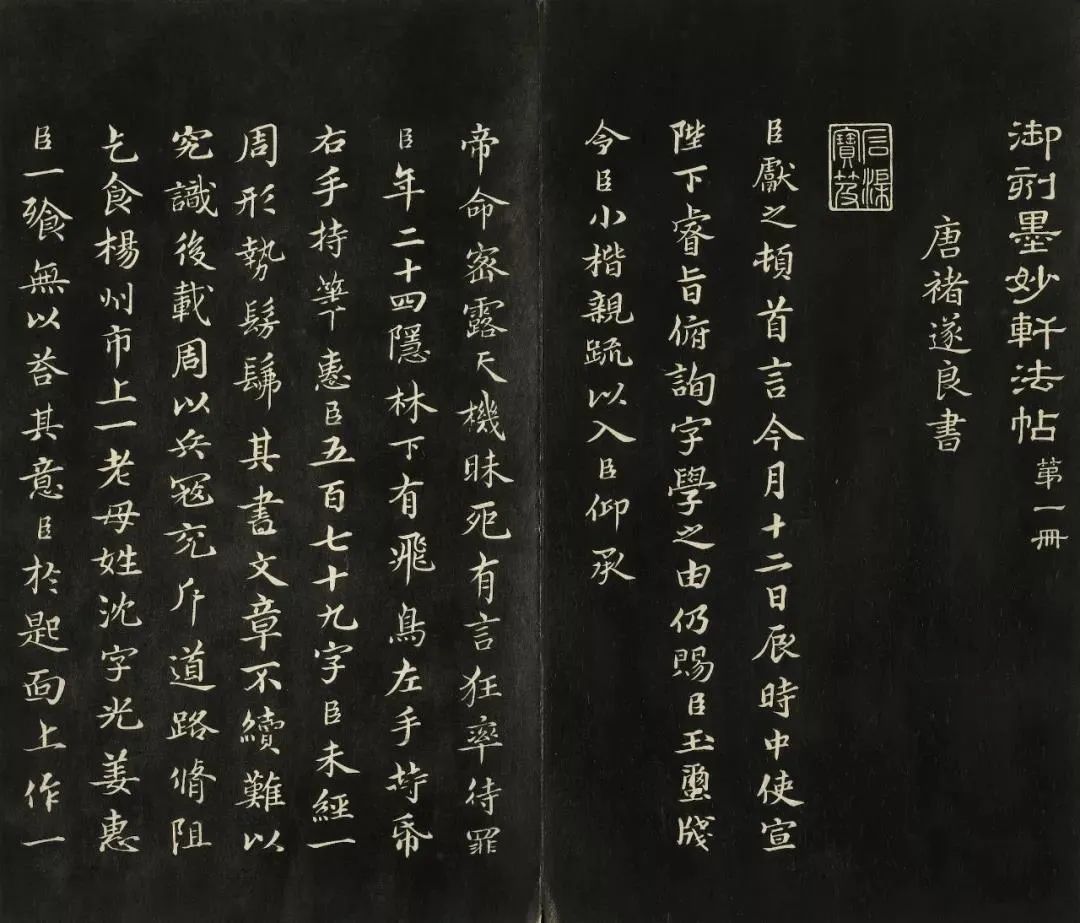 御刻墨妙軒法帖 第一冊
唐褚遂良書
石渠寶笈
臣獻之頓首言今月十二日辰時中使宣
陛下睿旨俯詢字學之由仍賜臣玉璽牋
令臣小楷親疏以入臣仰承
帝命密露天機昧死有言狂率待罪
臣年二十四隱林下有飛鳥左手持帋
右手持筆惠臣五百七十九字臣未經一
周形勢髣髴其書文章不續難以
究識後載周以兵寇充斥道路脩阻
乞食楊州市上一老母姓沈字光姜惠
臣一飱無以荅其意臣於匙面上作一